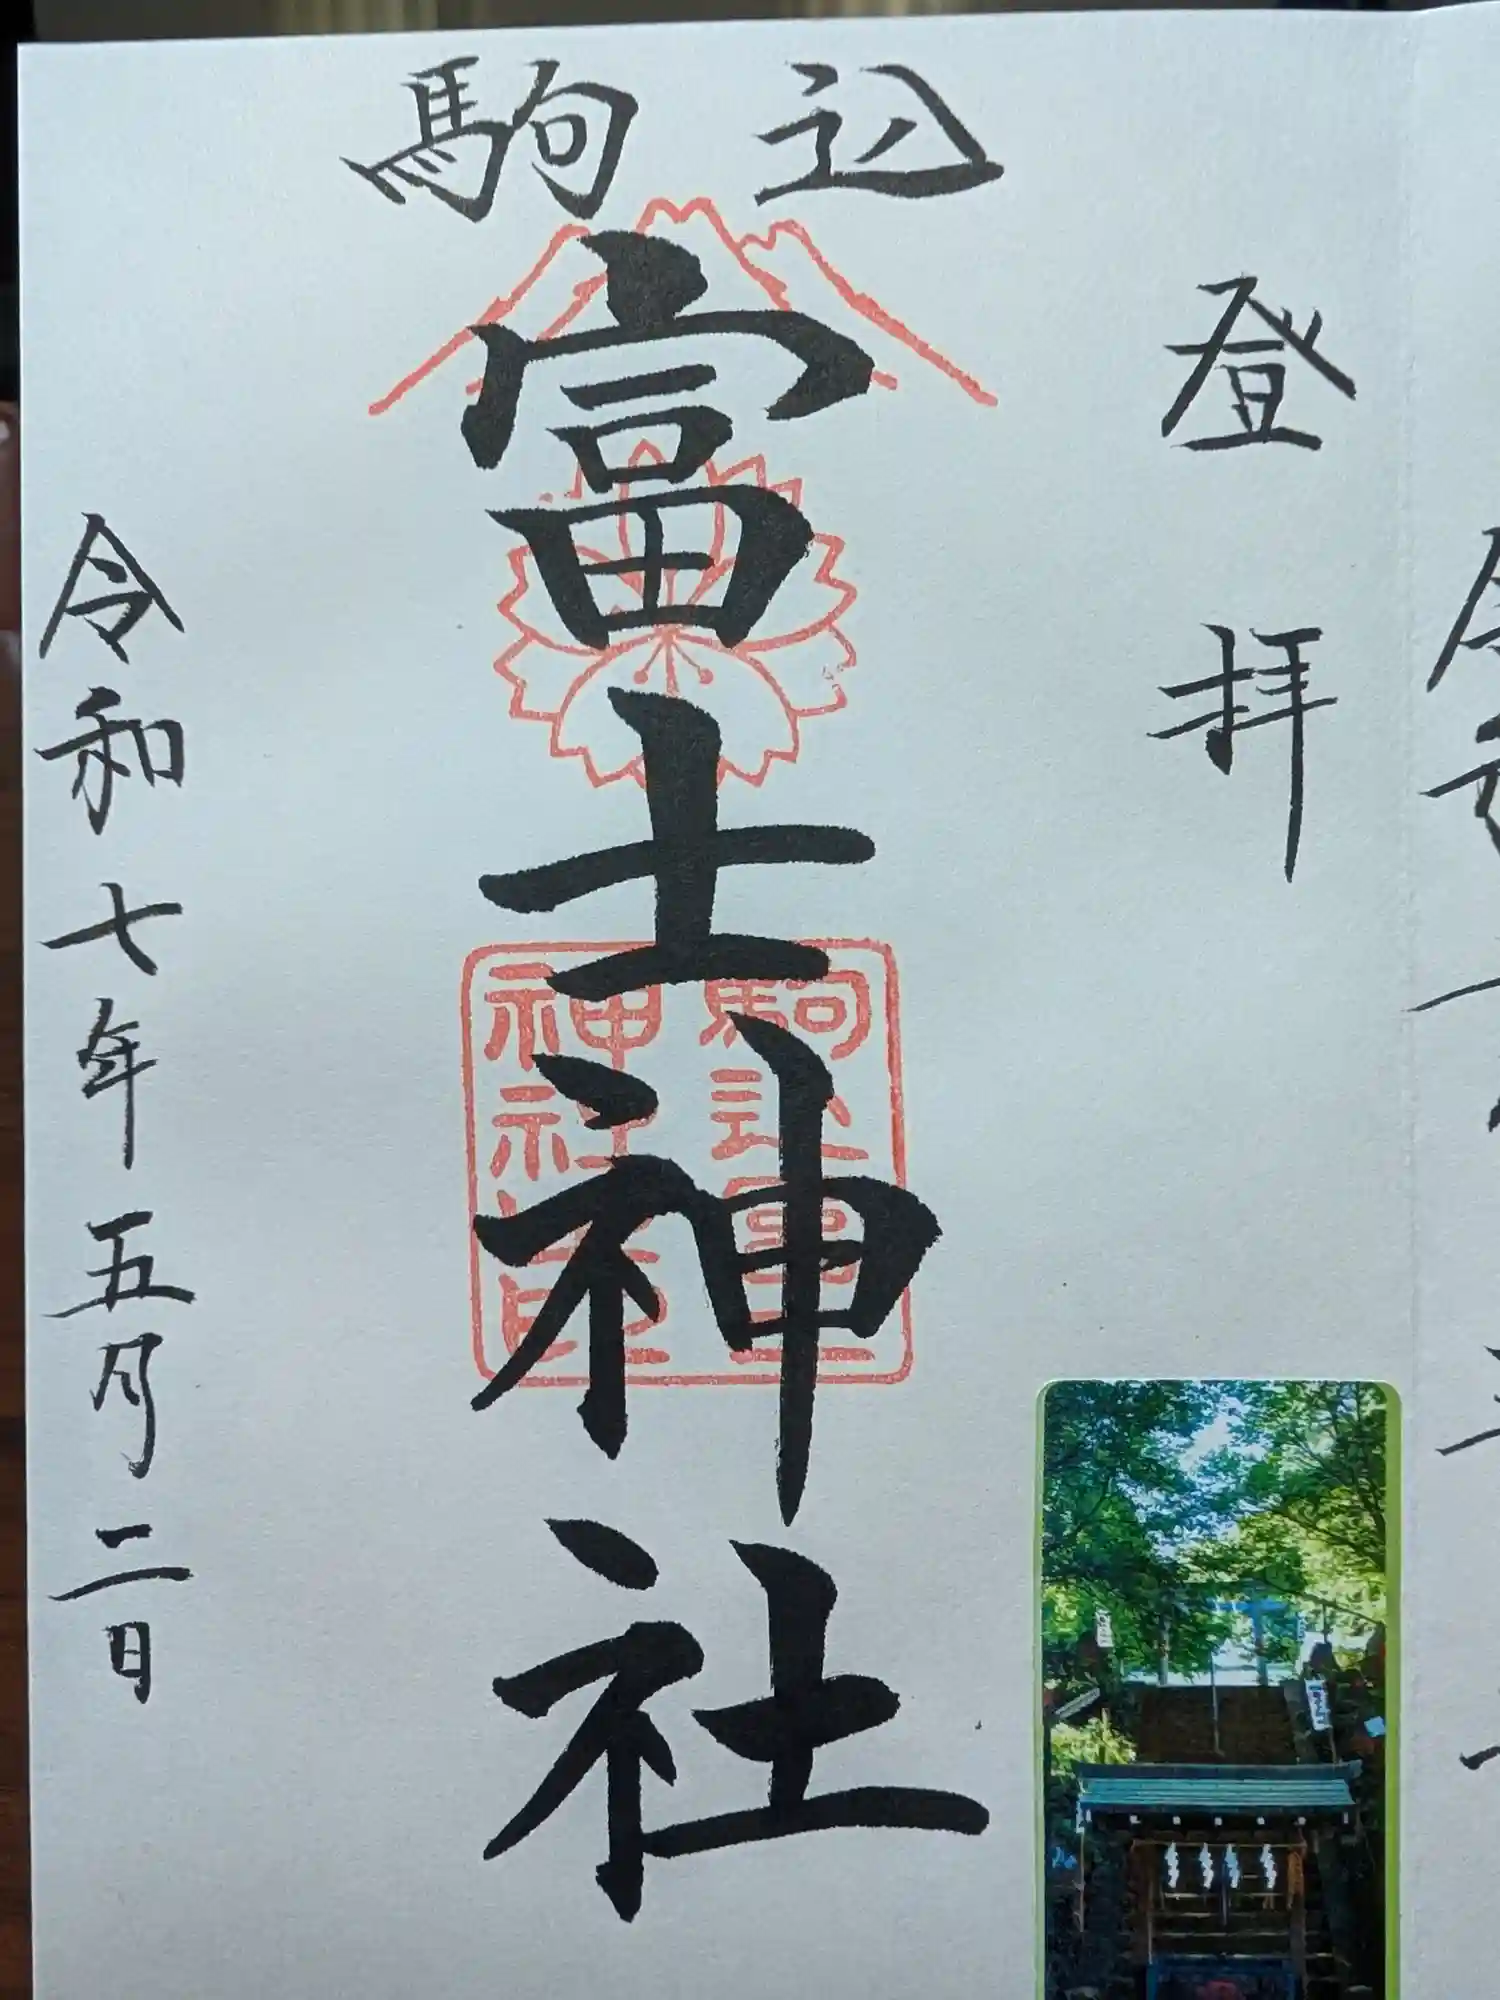 駒込
登拝
富士神社
令和七年五月二日
駒込富士
神社之印